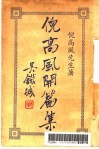 倪高風先生著
倪高風開篇集
吳鐵城